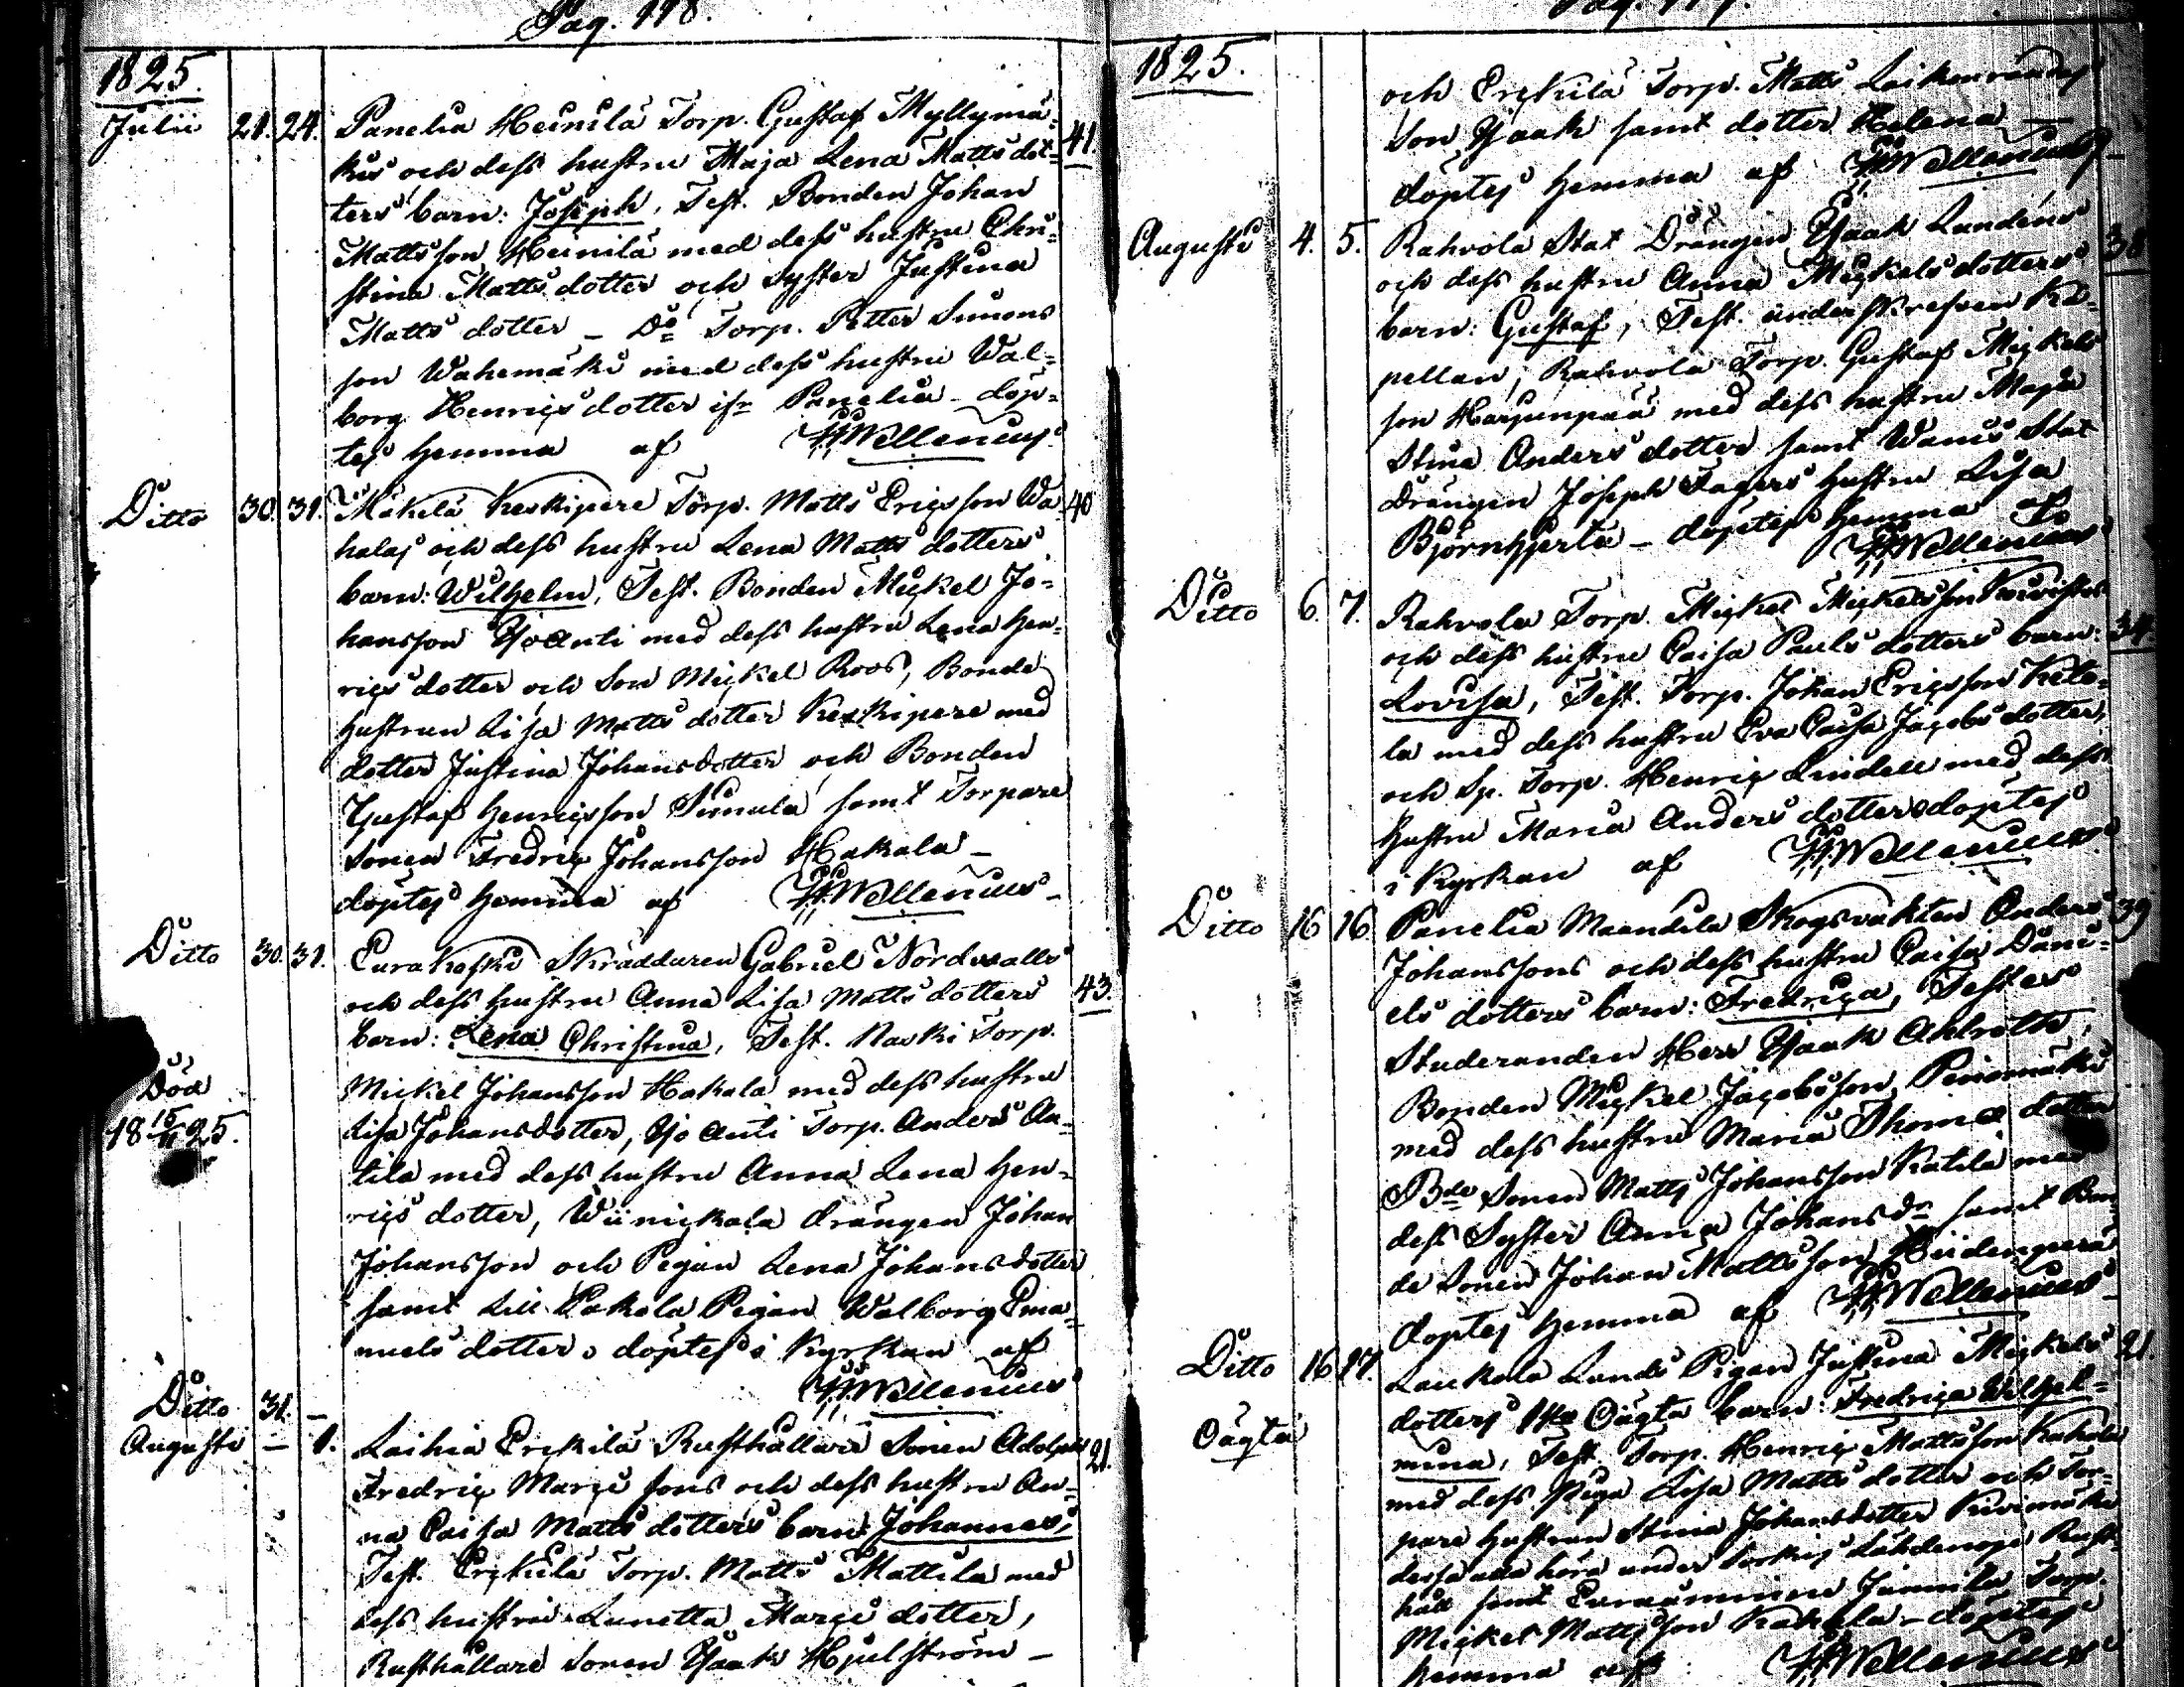 Pag. 118.
1825.
Julii 21. 24. Panelia Heinilä Torp. Gustaf Myllymä- 41.
kis och dess hustru Maja Lena Matts dot-
ters barn: Joseph, Test. Bonden Johan
Mattsson Heinilä med dess hustru Chri-
stina Matts dotter och syster Justina
Matts dotter – Do Torp. Petter Simons
son Wahemäki med dess hustru Wal-
borg Henrics dotter ifr. Panelia – döp-
tes hemma af HWellenius
Ditto 30. 31. Mäkelä Keskipere Torp. Matts Ericsson Wa- 40
halas och dess hustru Lena Matts dotters
barn: Wilhelm, Test. Bonden Michel Jo-
hansson Yjoanti med dess hustru Lena Hen-
rics dotter och Son Michel Roos, Bonde
Hustrun Lisa Matts dotter Keskipere med
dotter Justina Johansdotter och Bonden
Gustaf Henricsson Simula samt Torpare
Sonen Fredric Johansson Hakala –
döptes hemma af HWellenius –
Ditto 30. 31. Eurakoski Skräddaren Gabriel Nordwalls
och dess hustru Anna Lisa Matts dotters 43.
barn: Lena Christina, Test. Naski Torp.
Död
18 15/11 25.
Michel Johansson Hakala med dess hustru
Lisa Johansdotter, Yjoanti Torp. Anders An-
tila med dess hustru Anna Lena Hen-
rics dotter, Wiinickala drängen Johan
Johansson och Pigan Lena Johansdotter
samt Lill Pakola Pigan Walborg Ema-
nuels dotter, döptes i Kyrkan af
HWellenius
Ditto 31. –
Augusti – 1. Laihia Erckilä Rusthållare Sonen Adolph 21.
Fredric Marci sons och dess hustru An-
na Caisa Matts dotters barn: Johannes,
Test. Erckilä Torp. Matts Mattila med
dess hustru Lunetta Marci dotter,
Rusthållare Sonen Isaak Hjulström –
1825.
och Erckilä Torp. Matts
Son Isaak samt dotter Helena –
döptes hemma af HWellenius –
Augusti 4. 5. Rahvola Stat Drängen Isaak Lundens 38
och dess hustru Anna Michelsdotters
barn: Gustaf, Test. underskrefven Ka-
pellan, Rahvola Torp. Gustaf Michels
son Harjunpää med dess hustru Maja
Stina Anders dotter samt Wanis Stat
Drängen Joseph Fagers hustru Lisa
Björnhjerta – döptes hemma af
HWellenius
Ditto 6. 7. Rahvola Torp. Michel Michelsson Koivistos
och dess hustru Caisa Pauls dotters barn: 34.
Lovisa, Test. Torp. Johan Ericsson Keto-
la med dess hustru Eva Caisa Jacobs dotter,
och Sp. Torp. Henric Lindell med dess
Hustru Maria Anders dotter döptes
i Kyrkan af HWellenius
Ditto 16 16. Panelia Maandila Skogsvakten Anders 39
Johanssons och dess hustru Caisa Dani-
els dotters barn: Fredrica, Testes
Studeranden Herr Isaak Ahlroth,
Bonden Michel Jacobsson Penimäki
med dess hustru Maria Thomæ dotter
Bde Sonen Matts Johansson Katila med
dess Syster Anna Johansdr samt Bon
de Sonen Johan Mattsson Hiidenperä
döptes hemma af HWellenius
Ditto 16 17. Laukola Lunds Pigan Justina Michels 21.
Oägta dotters Oägta barn: Fredrica Wilhel-
mina, Test. Torp. Henric Mattsson Kakola
med dess Piga Lisa Matts dotter och Tor-
pare hustrun Stina Johansdotter Kivimäki
dessa alla höra under Sorkis Lähdenoja Rust-
håll samt Euraåminne Junnila Torp.
Michel Mattsson Kakola – döptes
hemma af HWellenius